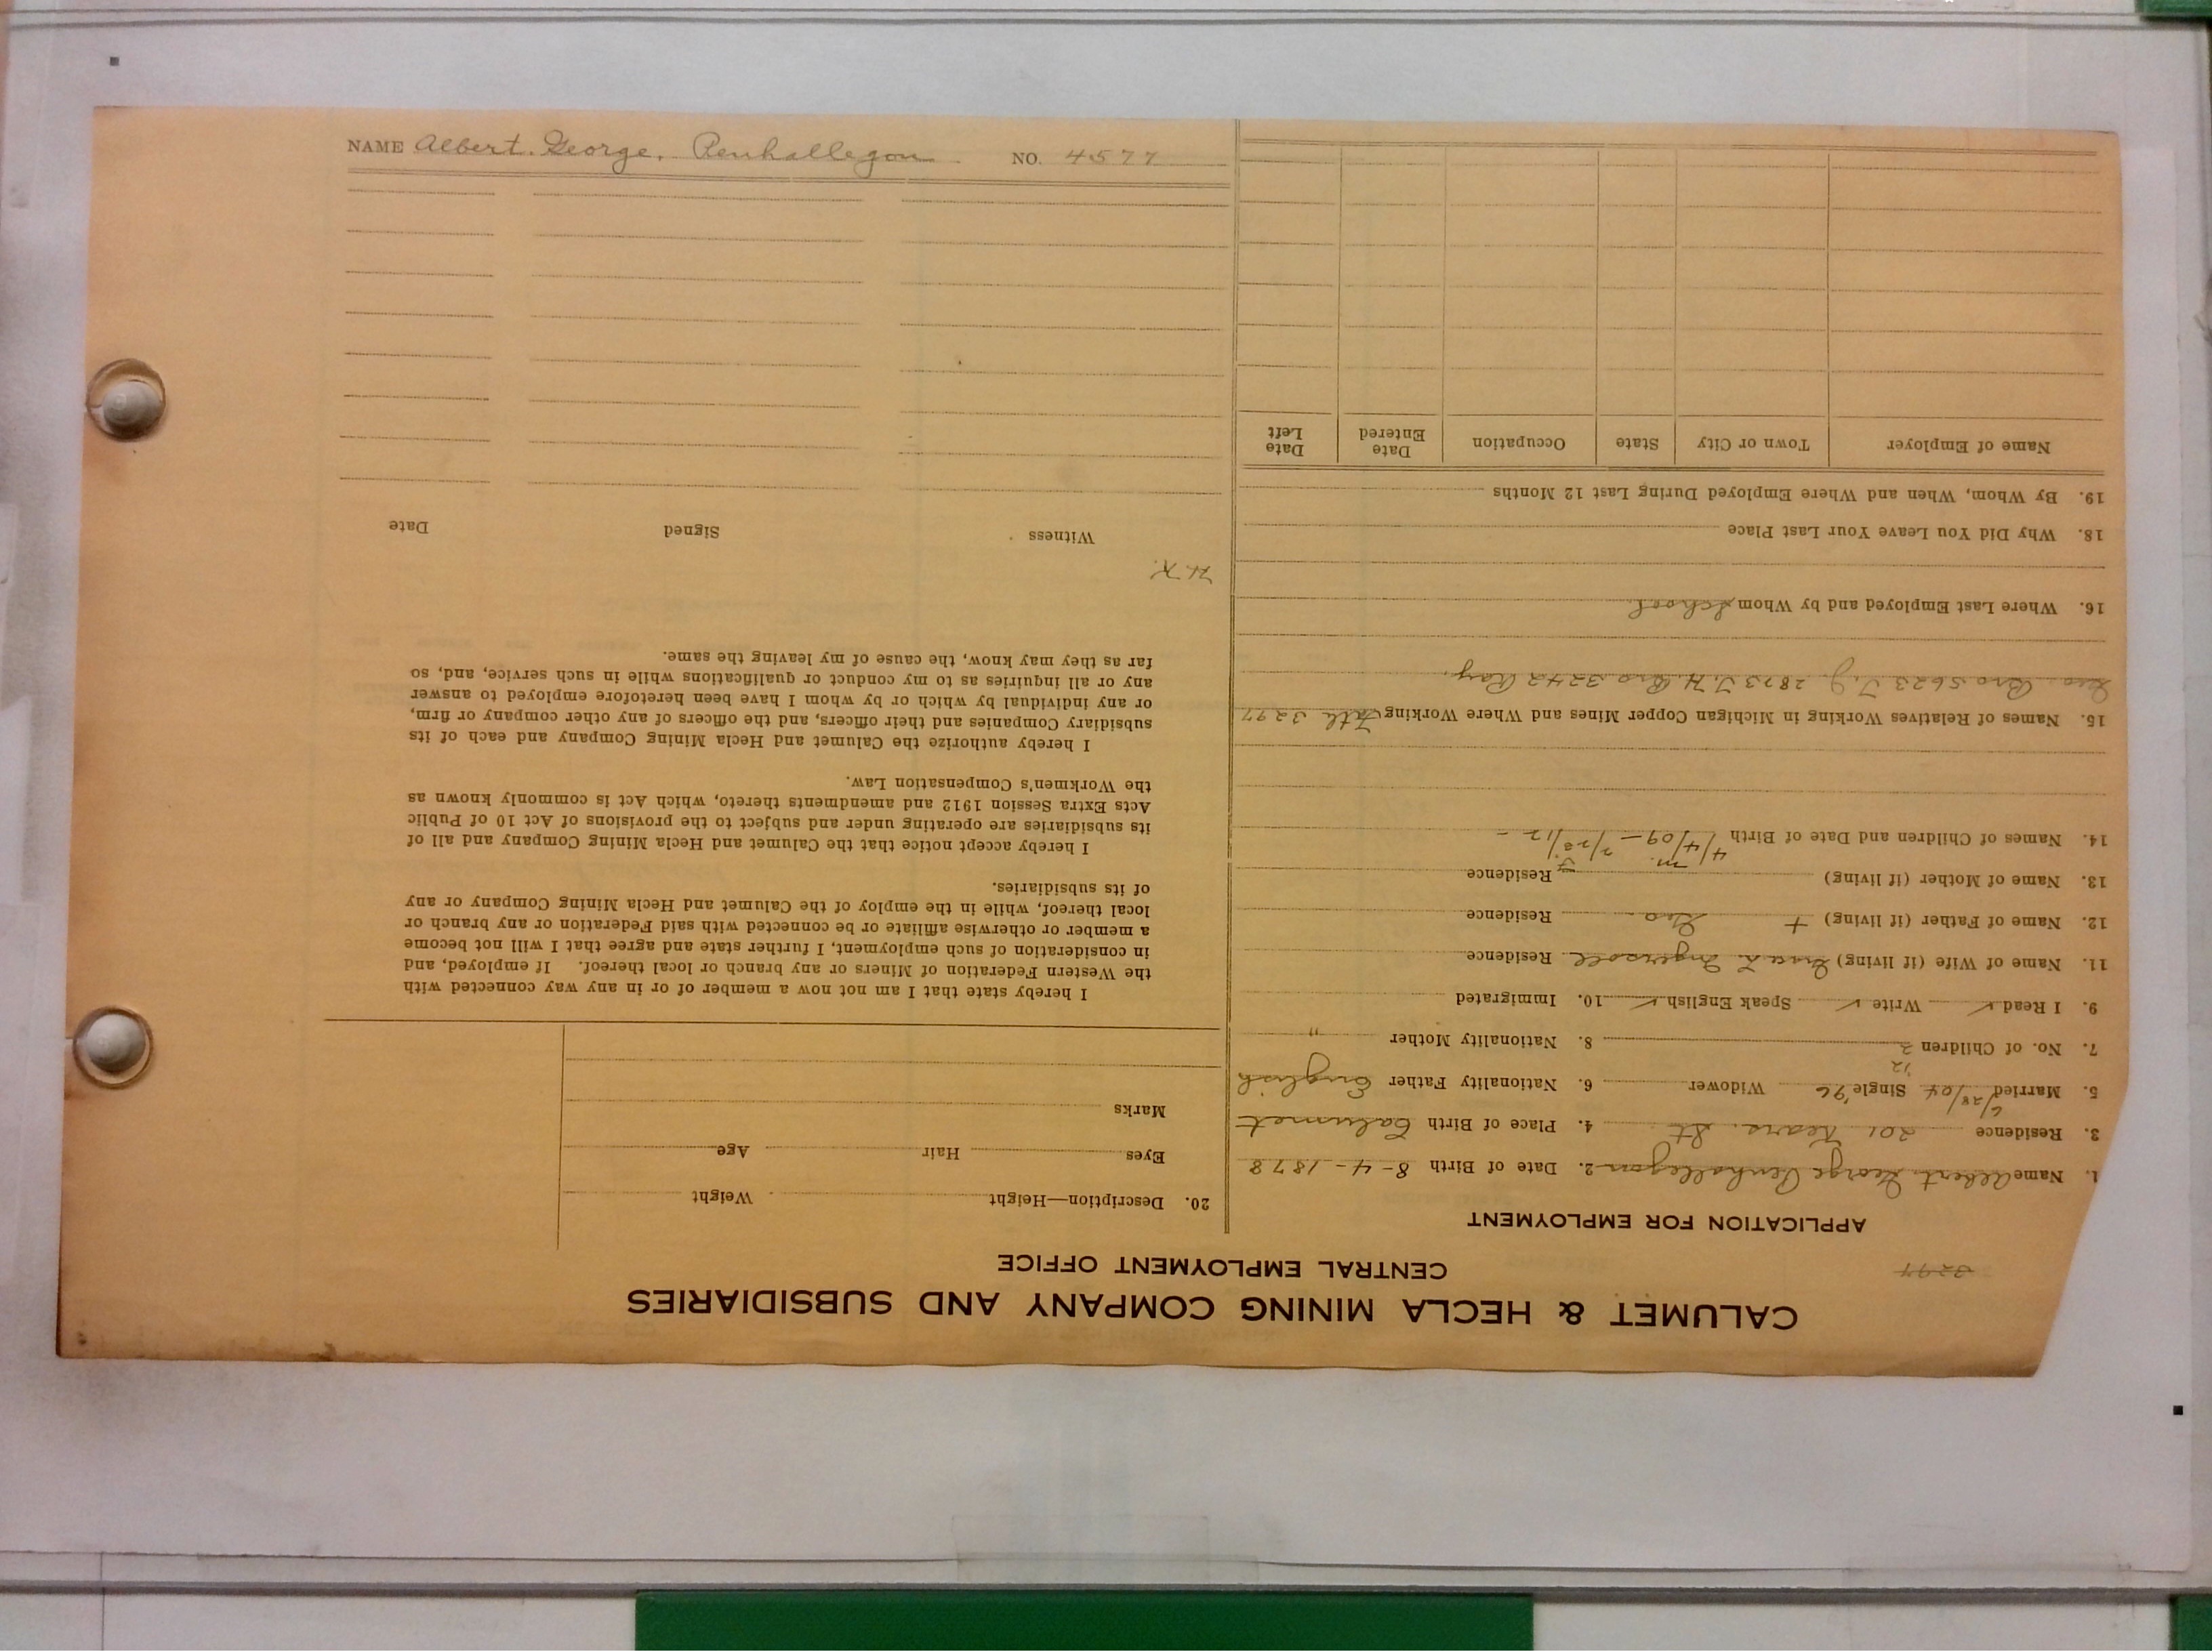 NAME Albert. George. Penhallegon NO. 4577
3277
CALUMET & HECLA MINING COMPANY AND SUBSIDIARIES
CENTRAL EMPLOYMENT OFFICE
APPLICATION FOR EMPLOYMENT
1. Name Albert. George Penhallegon 2. Date of Birth 8-4-1878
3. Residence 201 Kears. St. 4. Place of Birth Calumet
5. Married 6/28/04 Single '96 Widower 6. Nationality Father English
'12
7. No. of Children 2 8. Nationality Mother "
9. I Read ✓ Write ✓ Speak English ✓ 10. Immigrated
11. Name of Wife (if living) Ingersoll Residence
12. Name of Father (if living) + Geo Residence
13. Name of Mother (if living) Residence
m. F.
14. Names of Children and Date of Birth 4/4/09 - 7/28/12 -
15. Names of Relatives Working in Michigan Copper Mines and Where Working Fath 3277
Geo. Bro 5623 T.J. 2873 T.H. Bro 3242 Ray.
16. Where Last Employed and by Whom School.
18. Why Did You Leave Your Last Place
19. By Whom, When and Where Employed During Last 12 Months
Name of Employer Town or City State Occupation Date Entered Date Left
20. Description—Height Weight
Eyes Hair Age
Marks
I hereby state that I am not now a member of or in any way connected with
the Western Federation of Miners or any branch or local thereof. If employed, and
in consideration of such employment, I further state and agree that I will not become
a member or otherwise affiliate or be connected with said Federation or any branch or
local thereof, while in the employ of the Calumet and Hecla Mining Company or any
of its subsidiaries.
I hereby accept notice that the Calumet and Hecla Mining Company and all of
its subsidiaries are operating under and subject to the provisions of Act 10 of Public
Acts Extra Session 1912 and amendments thereto, which Act is commonly known as
the Workmen's Compensation Law.
I hereby authorize the Calumet and Hecla Mining Company and each of its
subsidiary Companies and their officers, and the officers of any other company or firm,
or any individual by which or by whom I have been heretofore employed to answer
any or all inquiries as to my conduct or qualifications while in such service, and, so
far as they may know, the cause of my leaving the same.
Witness Signed Date